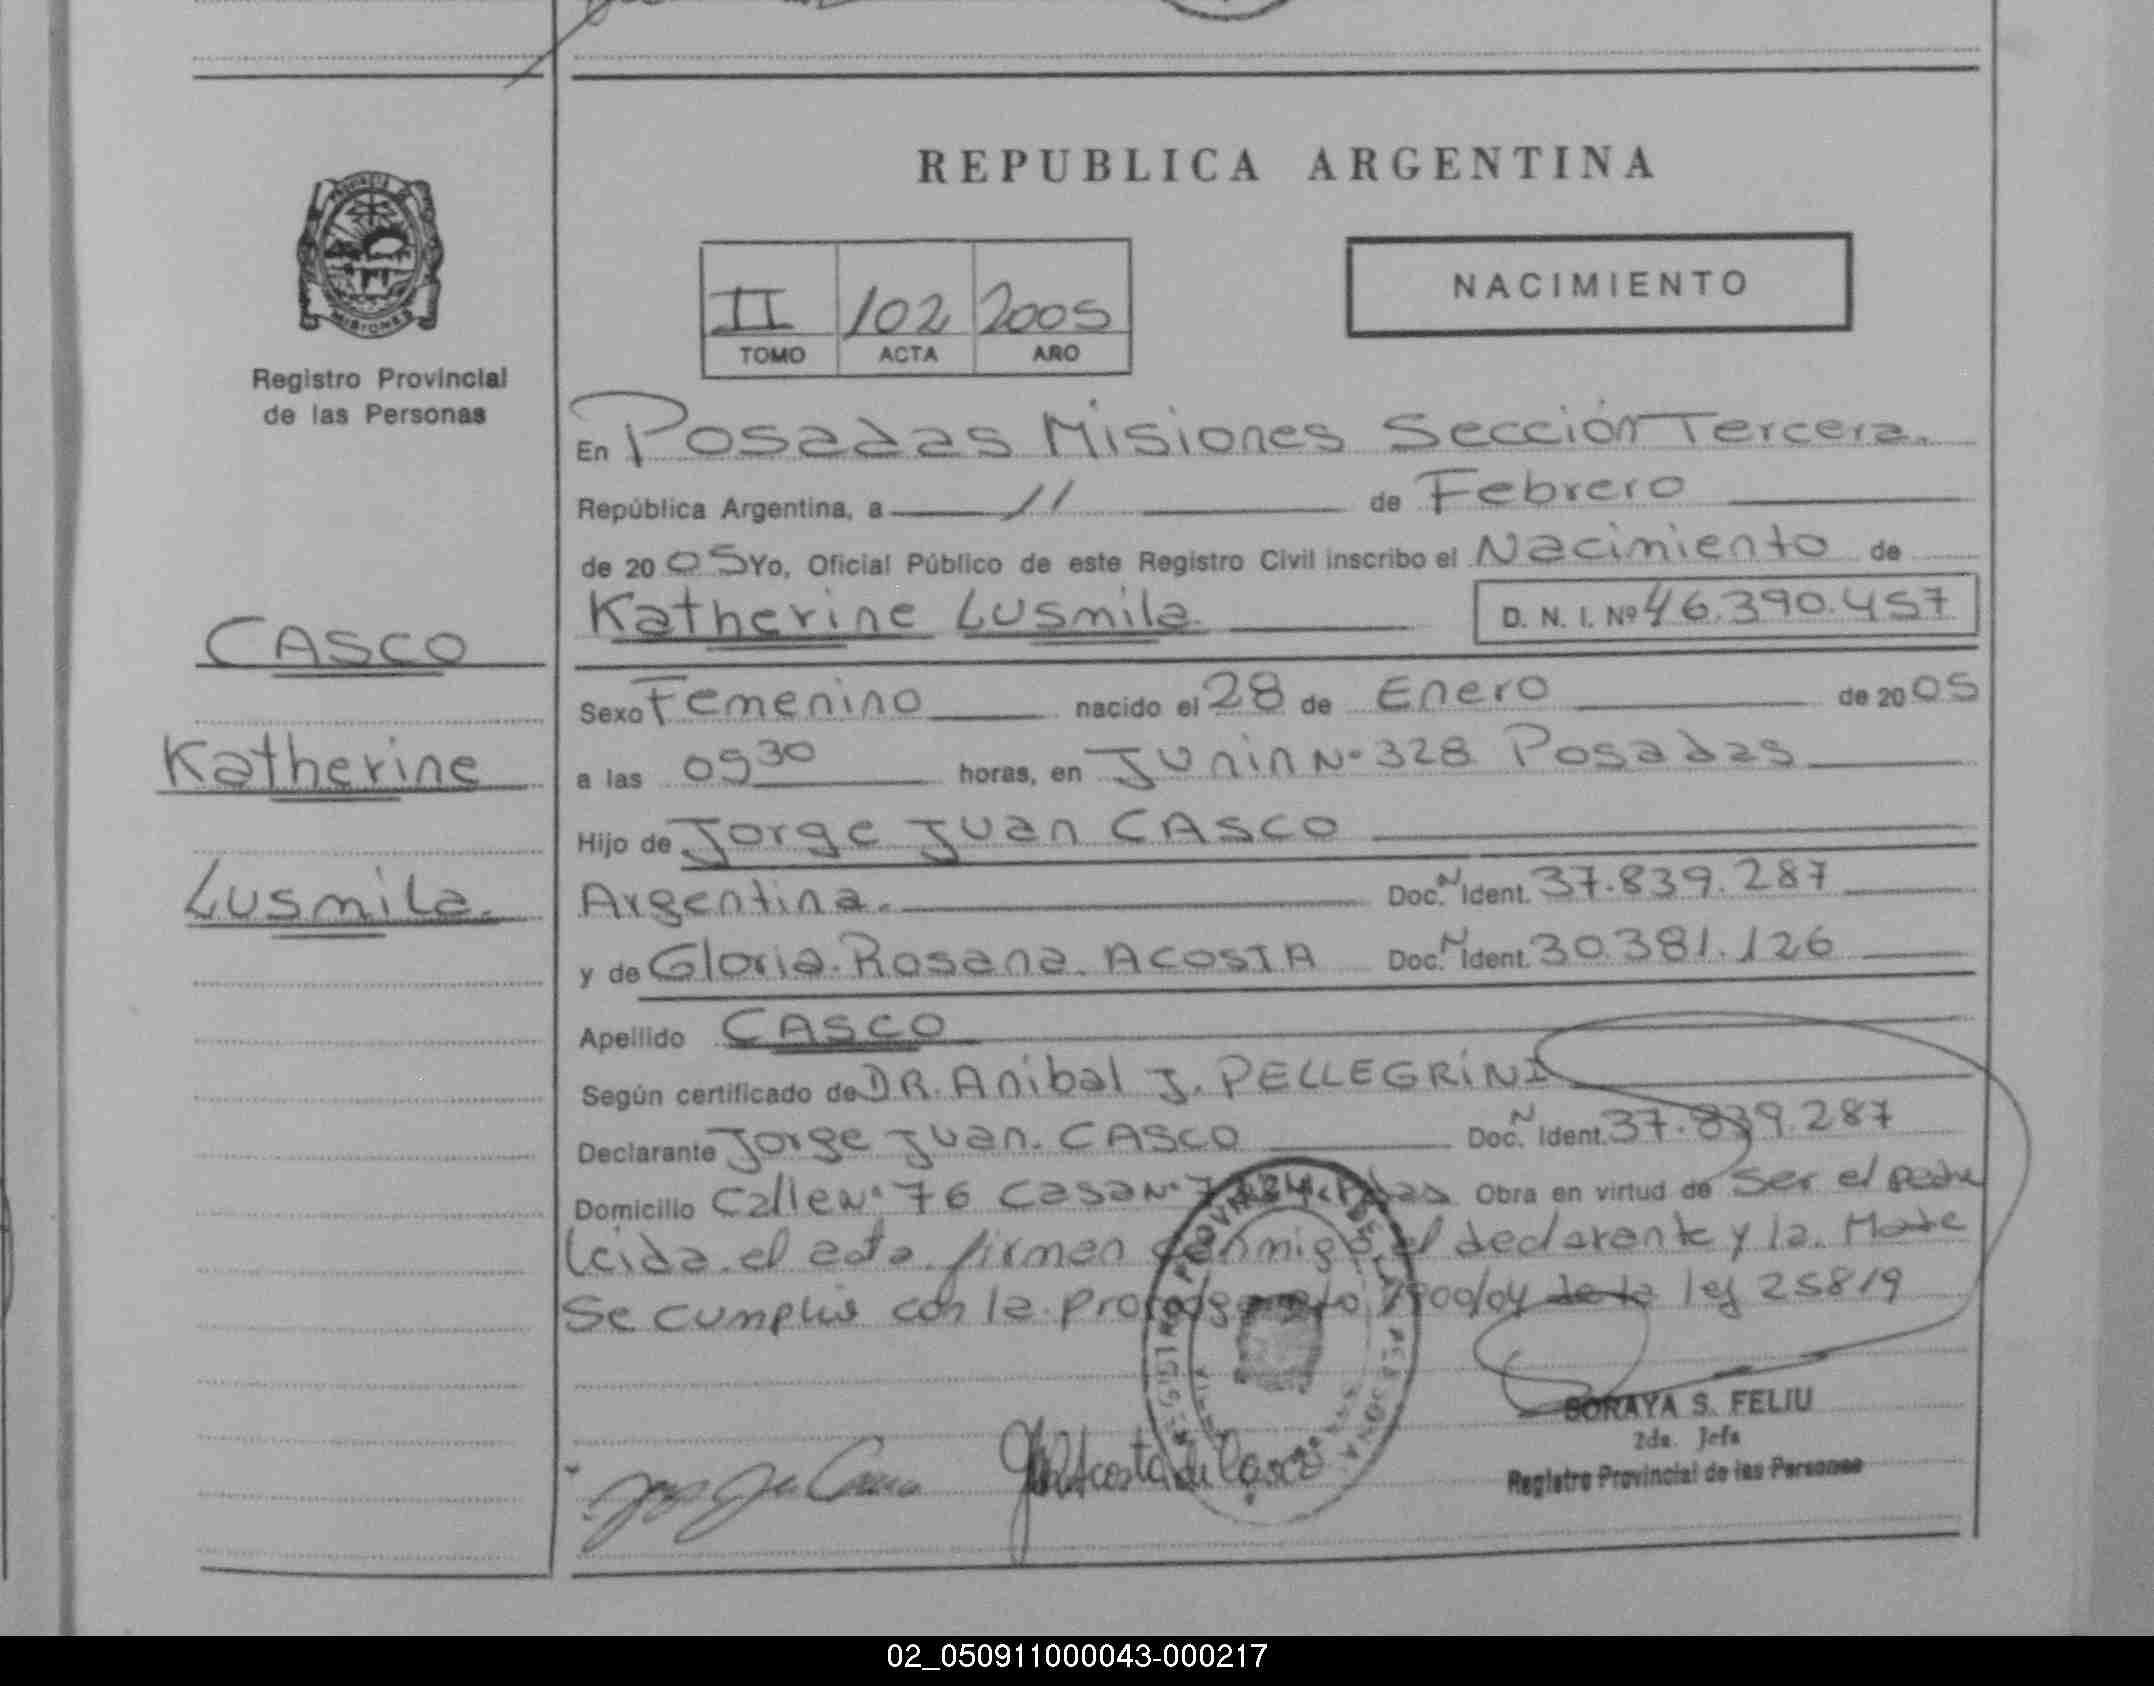 REPUBLICA ARGENTINA
II 102 2005
TOMO ACTA AÑO
NACIMIENTO
PROVINCIA
MISIONES
Registro Provincial
de las Personas
CASCO
Katherine
Lusmila.
En Posadas Misiones Sección Tercera.
República Argentina, a 11 de Febrero
de 2005 Yo, Oficial Público de este Registro Civil inscribo el Nacimiento de
Katherine Lusmila D. N. I. Nº 46.390.457
Sexo Femenino nacido el 28 de Enero de 2005
a las 0930 horas, en Junin Nº 328 Posadas
Hijo de Jorge Juan CASCO
Argentina. Doc. N Ident. 37.839.287
y de Gloria Rosana ACOSTA Doc. N Ident. 30.381.126
Apellido CASCO
Según certificado de DR. Anibal J. PELLEGRINI
Declarante Jorge Juan CASCO Doc. N Ident. 37.839.287
Domicilio Calle Nº 76 Casa Nº Obra en virtud de Ser el padre
Leida el acta firman conmigo el declarante y la Madre
Se cumplio con la ley 25819
Acosta de Casco
SORAYA S. FELIU
2da. Jefa
Registro Provincial de las Personas
02_050911000043-000217